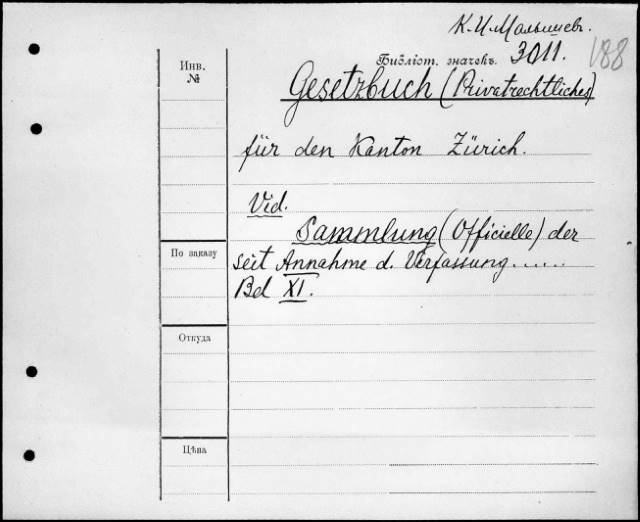 К. И. Малышевъ.
188
Библіот. значекъ. 3011.
Инв.
№
Gesetzbuch (Privatrechtliches)
für den Kanton Zürich.
Vid.
Sammlung (Officielle) der
По заказу
seit Annahme d. Verfassung......
Bd XI.
Откуда
Цѣна